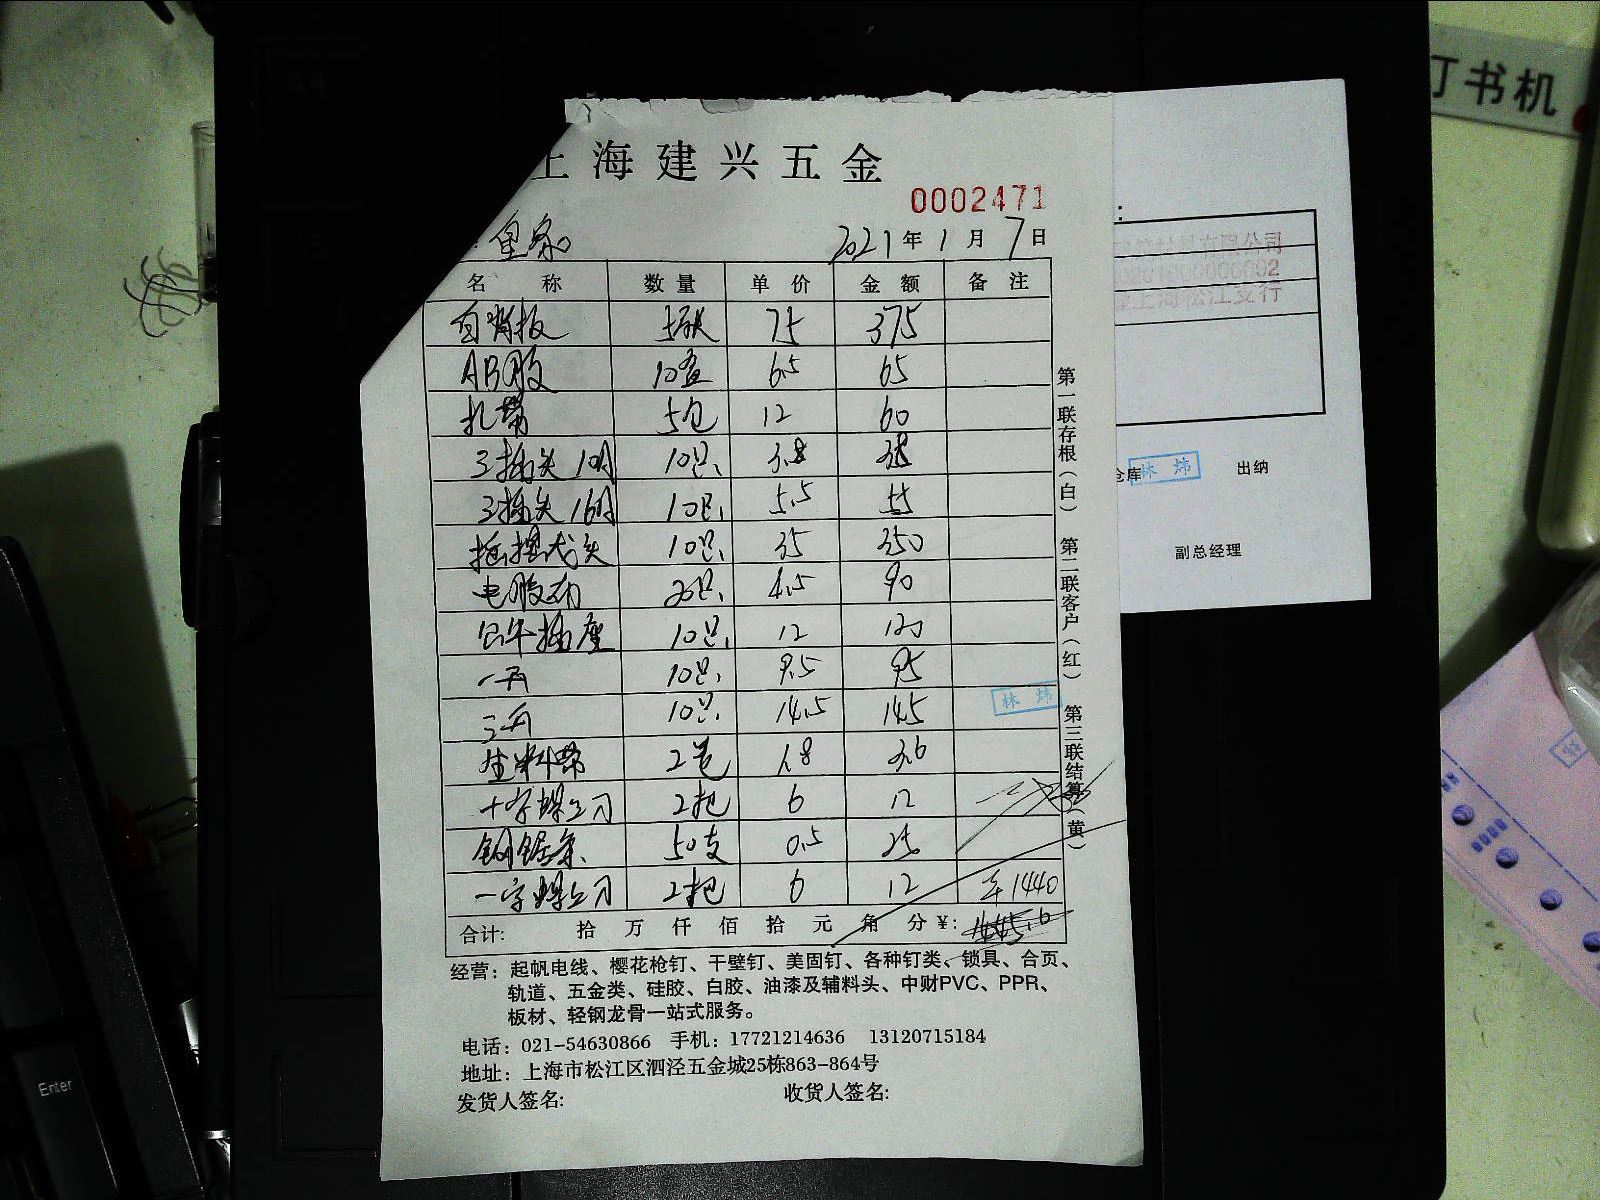 订书机
上海建兴五金
0002471
2021年1月7日
名 称 数量 单价 金额 备注
5张 75 375
AB胶 10盒 6.5 65
扎带 5包 12 60
3插头10A 10只 3.8 38
3插头16A 10只 5.5 55
10只 35 350
20只 4.5 90
公牛插座 10只 12 120
一开 10只 9.5 95
三开 10只 14.5 145
生料带 2卷 1.8 3.6
十字螺丝刀 2把 6 12
钢锯条 50支 0.5 25
一字螺丝刀 2把 6 12 1440
合计: 拾 万 仟 佰 拾 元 角 分 ¥: 1445.6
经营：起帆电线、樱花枪钉、干壁钉、美固钉、各种钉类、锁具、合页、
轨道、五金类、硅胶、白胶、油漆及辅料头、中财PVC、PPR、
板材、轻钢龙骨一站式服务。
电话：021-54630866 手机：17721214636 13120715184
地址：上海市松江区泗泾五金城25栋863-864号
发货人签名: 收货人签名:
第一联存根(白) 第二联客户(红) 第三联结算(黄)
林 炜
有限公司
上海松江支行
仓库 林 炜 出纳
副总经理
Enter